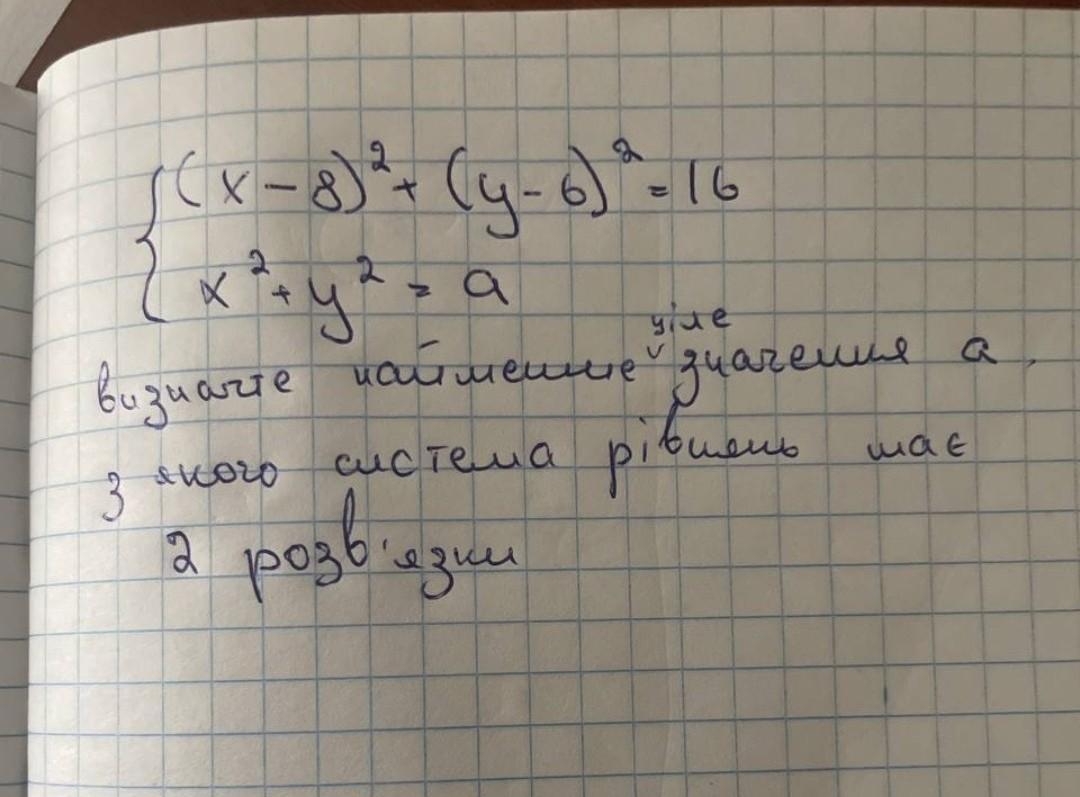 (x-8)² + (y-6)² = 16
x² + y² = a
ціле
визначте найменше значення a,
з якого система рівнень має
2 розв'язки